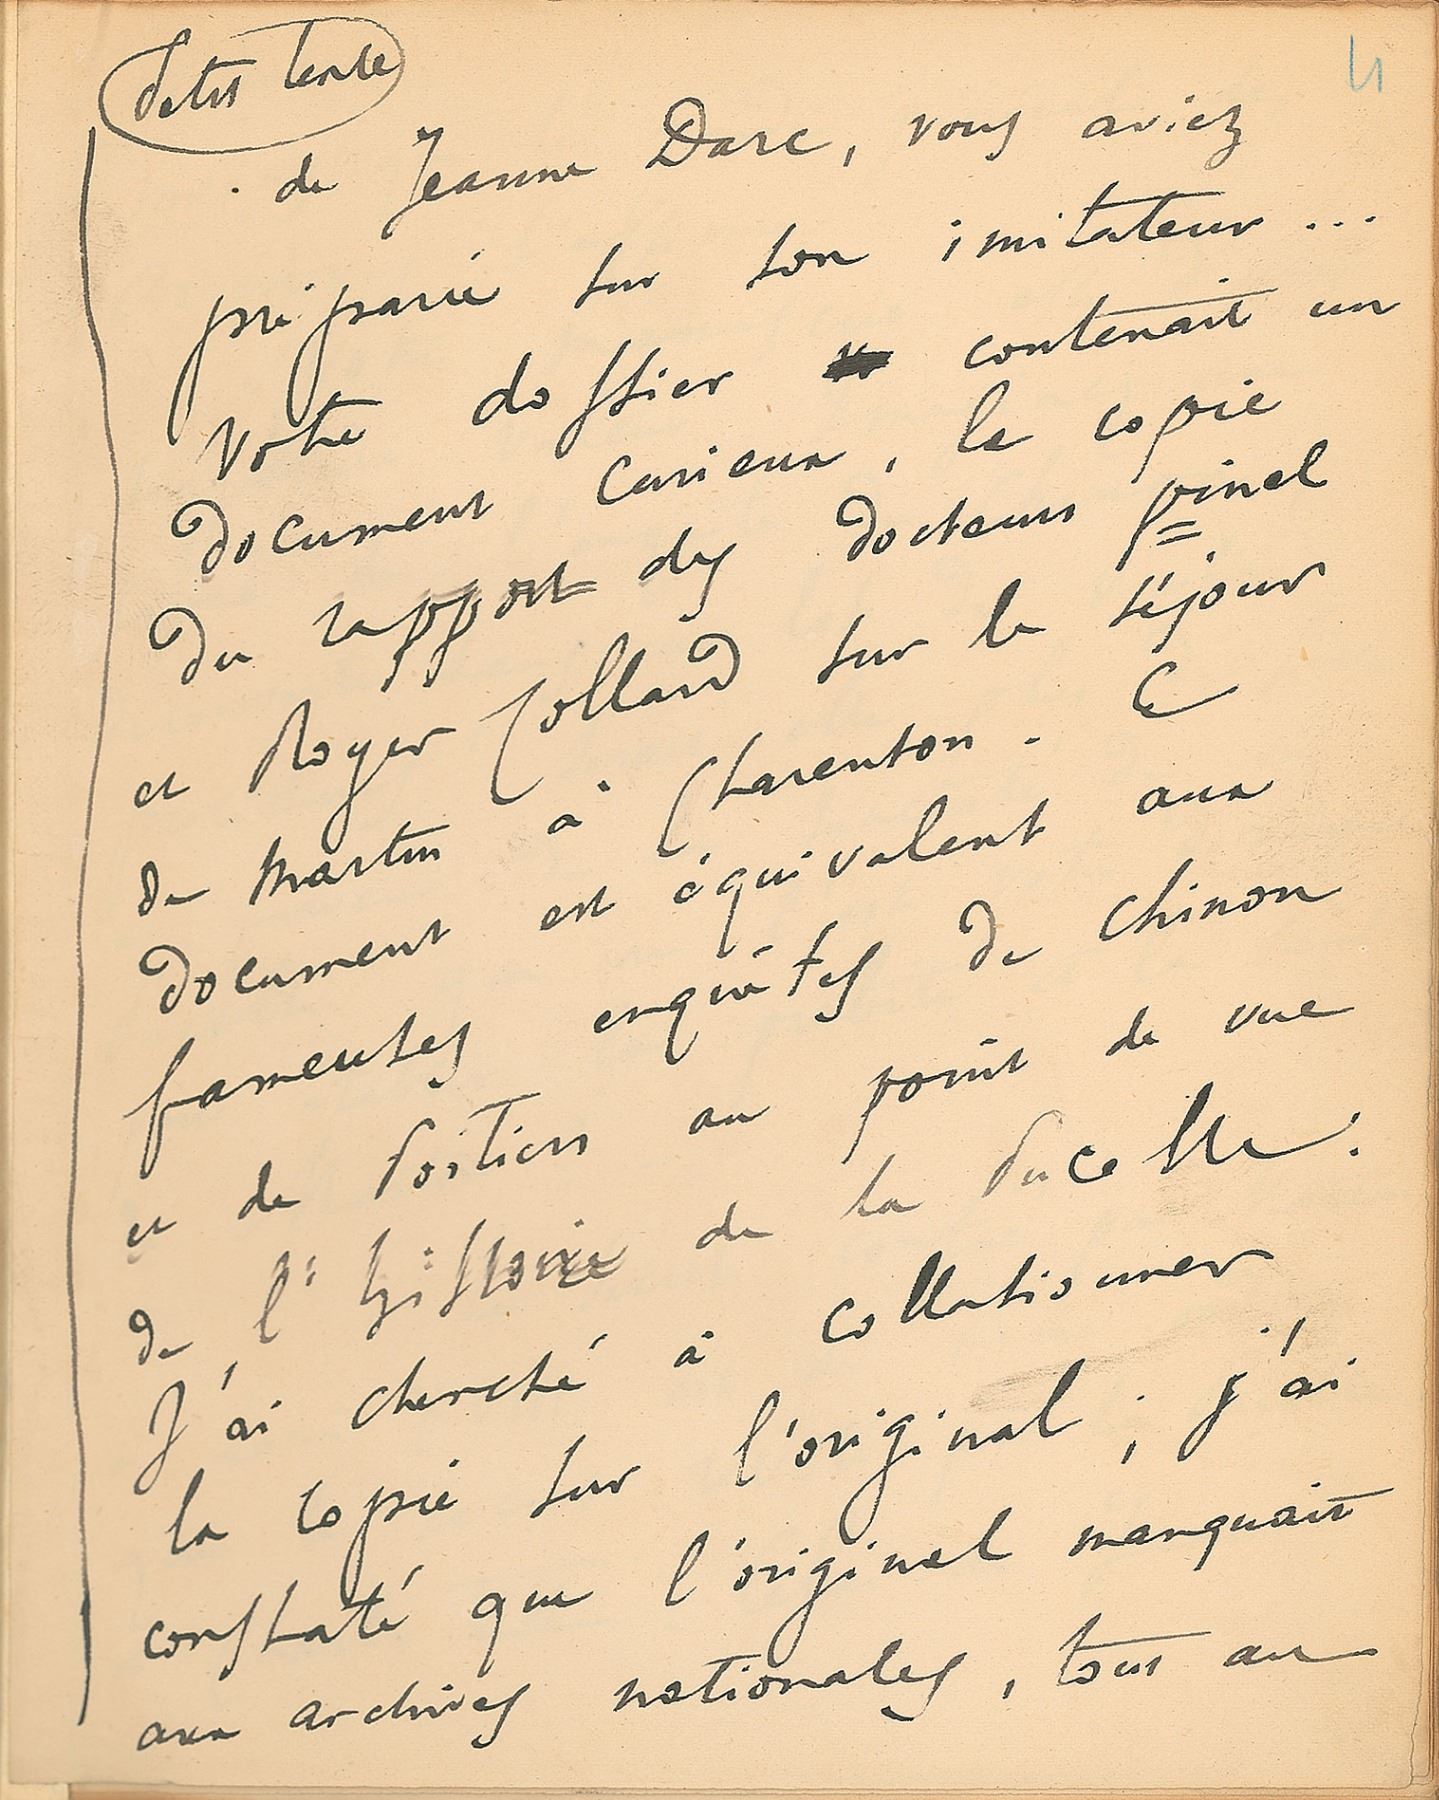 petit texte
4
de Jeanne Darc, vous aviez
préparé sur son imitateur ...
Votre dossier contenait un
document curieux, la copie
du rapport des docteurs pinel
et Royer Collard sur le séjour
de Martin à Charenton. Ce
document est équivalent aux
fameuses enquêtes de Chinon
et de Poitiers au point de vue
de l'histoire de la Pucelle.
J'ai cherché à collationner
la copie sur l'original ; j'ai
constaté que l'original manquait
aux archives nationales, tout au